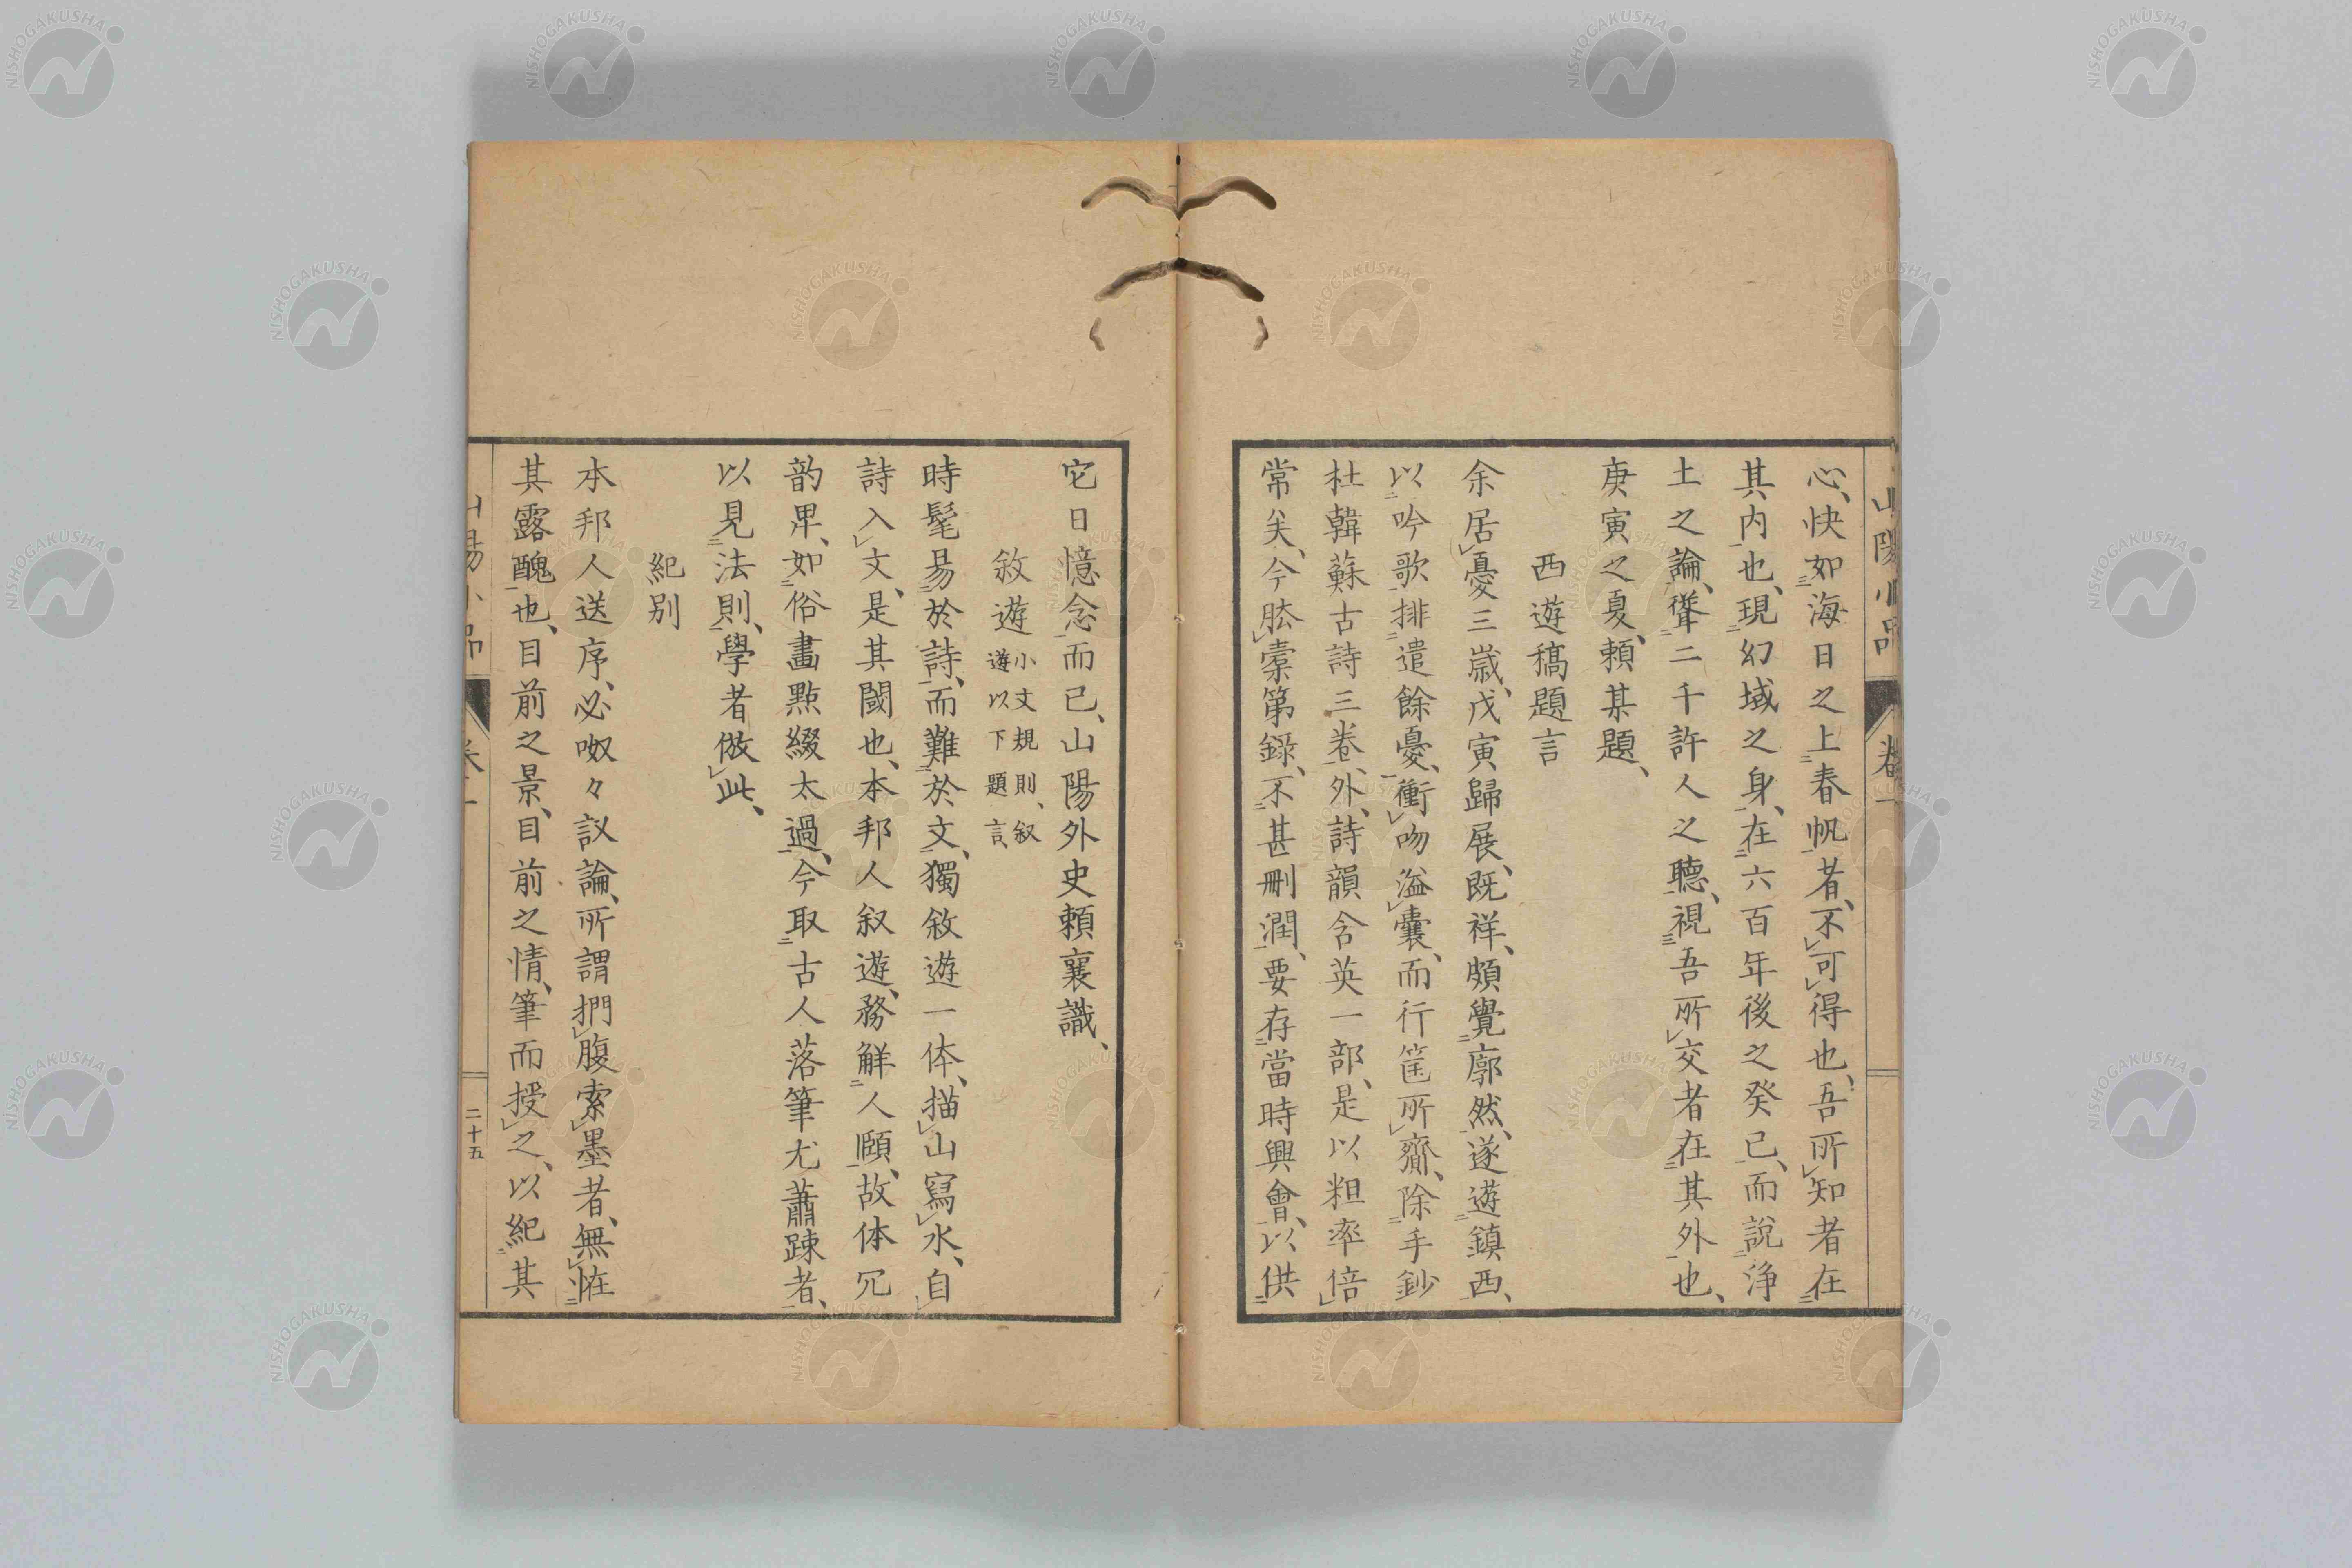 山陽小品 卷一
心、快如海日之上春帆者、不可得也、吾所知者在
其内也、現幻域之身、在六百年後之癸巳、而說淨
土之論、聳二千許人之聽、視吾所交者在其外也、
庚寅之夏、賴某題、
西遊稿題言
余居憂三歲、戊寅歸展、既祥、頗覺廓然、遂遊鎮西、
以吟歌排遣餘憂、衝吻溢囊、而行筐所齎、除手鈔
杜韓蘇古詩三卷、外、詩韻含英一部、是以粗率倍
常矣、今胠橐第錄、不甚刪潤、要存當時興會、以供
它日憶念而已、山陽外史賴襄識、
敘遊 小文規則、叙遊以下題言、
時髦易於詩、而難於文、獨敘遊一体、描山寫水、自
詩入文、是其闓也、本邦人叙遊、務解人頤、故体冗
韵卑、如俗畫點綴太過、今取古人落筆尤蕭疎者、
以見法則、學者倣此、
紀別
本邦人送序、必呶々議論、所謂捫腹索墨者、無恠
其露醜也、目前之景、目前之情、筆而授之、以紀其
山陽小品 卷一 二十五
NISHOGAKUSHA